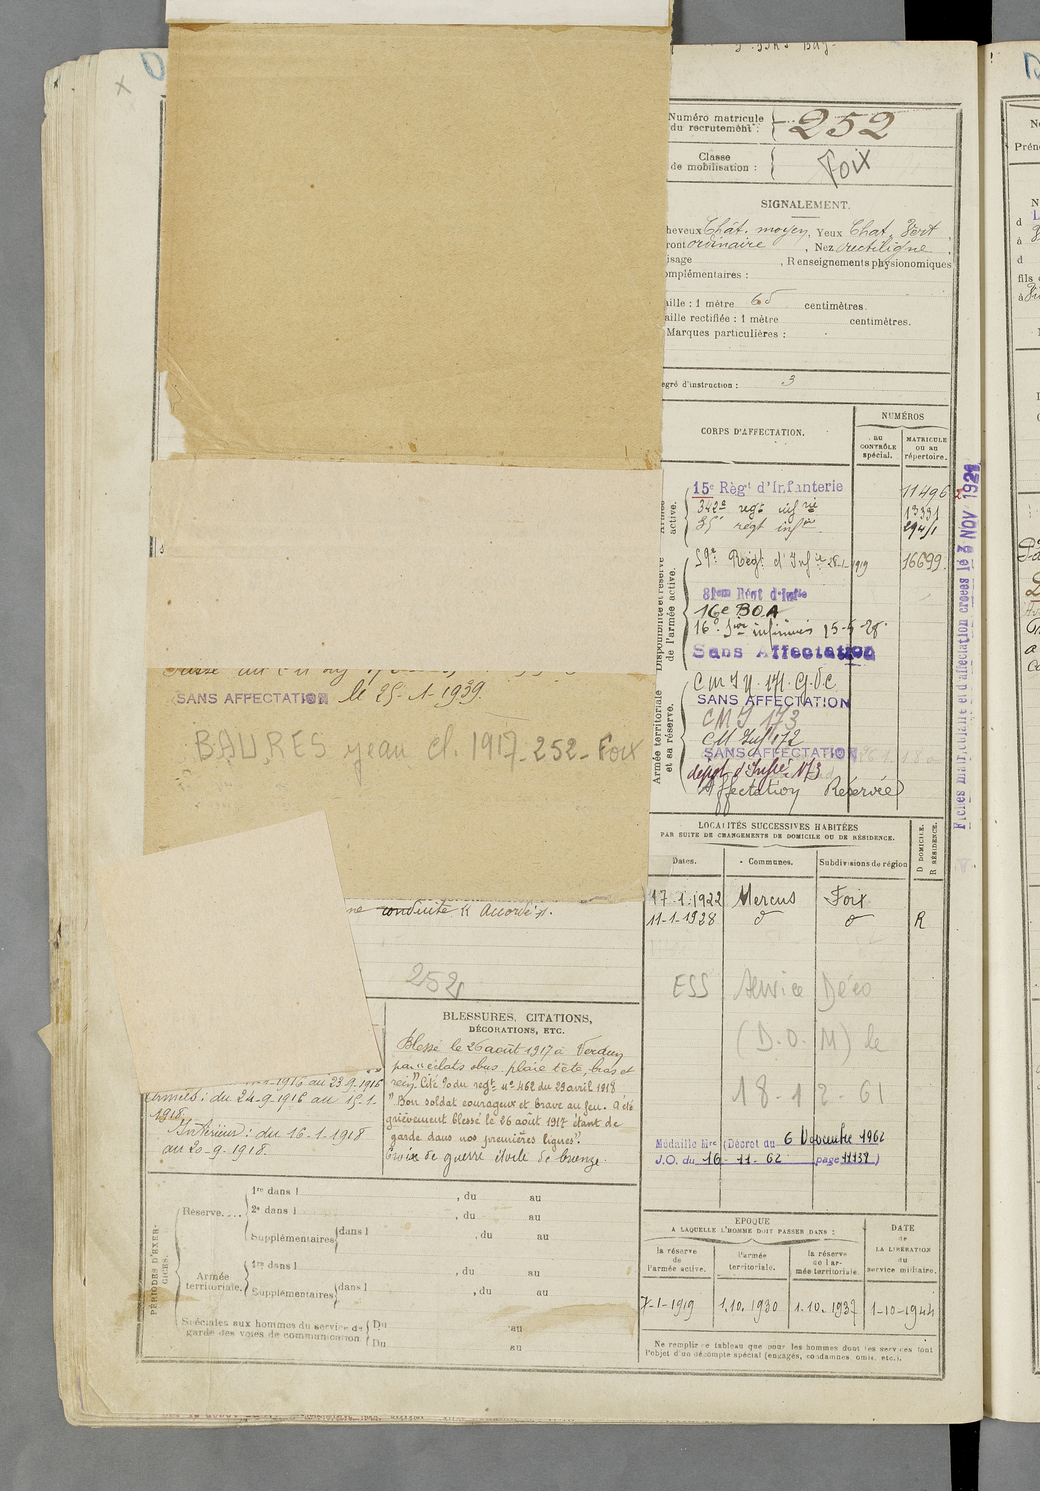 Numéro matricule
du recrutement :
252
Classe
de mobilisation :
Foix
SIGNALEMENT.
heveux Chât. moyen, Yeux Chat. Vert,
ront ordinaire, Nez rectiligne,
isage , Renseignements physionomiques
omplémentaires :
aille : 1 mètre 65 centimètres.
aille rectifiée : 1 mètre centimètres.
Marques particulières :
egré d'instruction : 3
CORPS D'AFFECTATION.
NUMÉROS
au
CONTRÔLE
spécial.
MATRICULE
ou au
répertoire.
Armée
active.
15e Règt d'Infanterie 11496
342e regt infrie 13331
regt infrie
Disponibilité et réserve
de l'armée active.
59e Régt d'Infie 28-1-1919 16699
81em Régt d'Infie
16e BOA
16e Son infirmiers 15-5-28
Sans Affectation
Armée territoriale
et sa réserve.
SANS AFFECTATION
CMI 173
CM Inf 172
SANS AFFECTATION
dépôt d'Infie 173
Affectation Réservée
Fiches matriculaire et d'affectation créées le 3 NOV 1921
SANS AFFECTATION le 25-1-1939
BAURES Jean Cl. 1917-252-Foix
LOCALITÉS SUCCESSIVES HABITÉES
PAR SUITE DE CHANGEMENTS DE DOMICILE OU DE RÉSIDENCE.
Dates.
Communes.
Subdivisions de région
D DOMICILE.
R RÉSIDENCE.
17.1.1922 Mercus Foix
11-1-1928 d° d° R
ne conduite " accordé.
252
ESS Service Déco
(D.O.M) le
18-12-61
Médaille Mre (Décret du 6 Novembre 1962
J.O. du 16-11-62 page 11138)
BLESSURES, CITATIONS,
DÉCORATIONS, ETC.
Blessé le 26 août 1917 à Verdun
par "éclats obus. plaie tête, bras et
rein". Cité Odu regt n° 462 du 29 avril 1918
"Bon soldat courageux et brave au feu. A été
grièvement blessé le 26 août 1917 étant de
garde dans nos premières lignes".
Croix de guerre étoile de bronze.
-1916 au 23.9.1916
Armées : du 24-9-1916 au 15-1-
1918.
Intérieur : du 16-1-1918
au 20-9-1918.
PÉRIODES D'EXER-
CICES.
Réserve....
1re dans l , du au
2e dans l , du au
Supplémentaires dans l , du au
Armée
territoriale.
1re dans l , du au
Supplémentaires dans l , du au
Spéciales aux hommes du service de
garde des voies de communication
Du au
Du au
EPOQUE
A LAQUELLE L'HOMME DOIT PASSER DANS :
DATE
de
LA LIBÉRATION
du
service militaire.
la réserve
de
l'armée active.
l'armée
territoriale.
la réserve
de l'ar-
mée territoriale.
7-1-1919 1.10.1930 1.10.1937 1-10-1944
Ne remplir ce tableau que pour les hommes dont les services font
l'objet d'un décompte spécial (engagés, condamnés, omis, etc.).